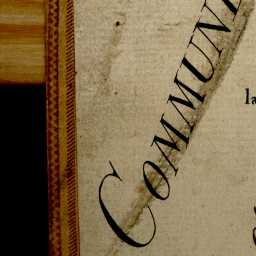 COMMUNI
la